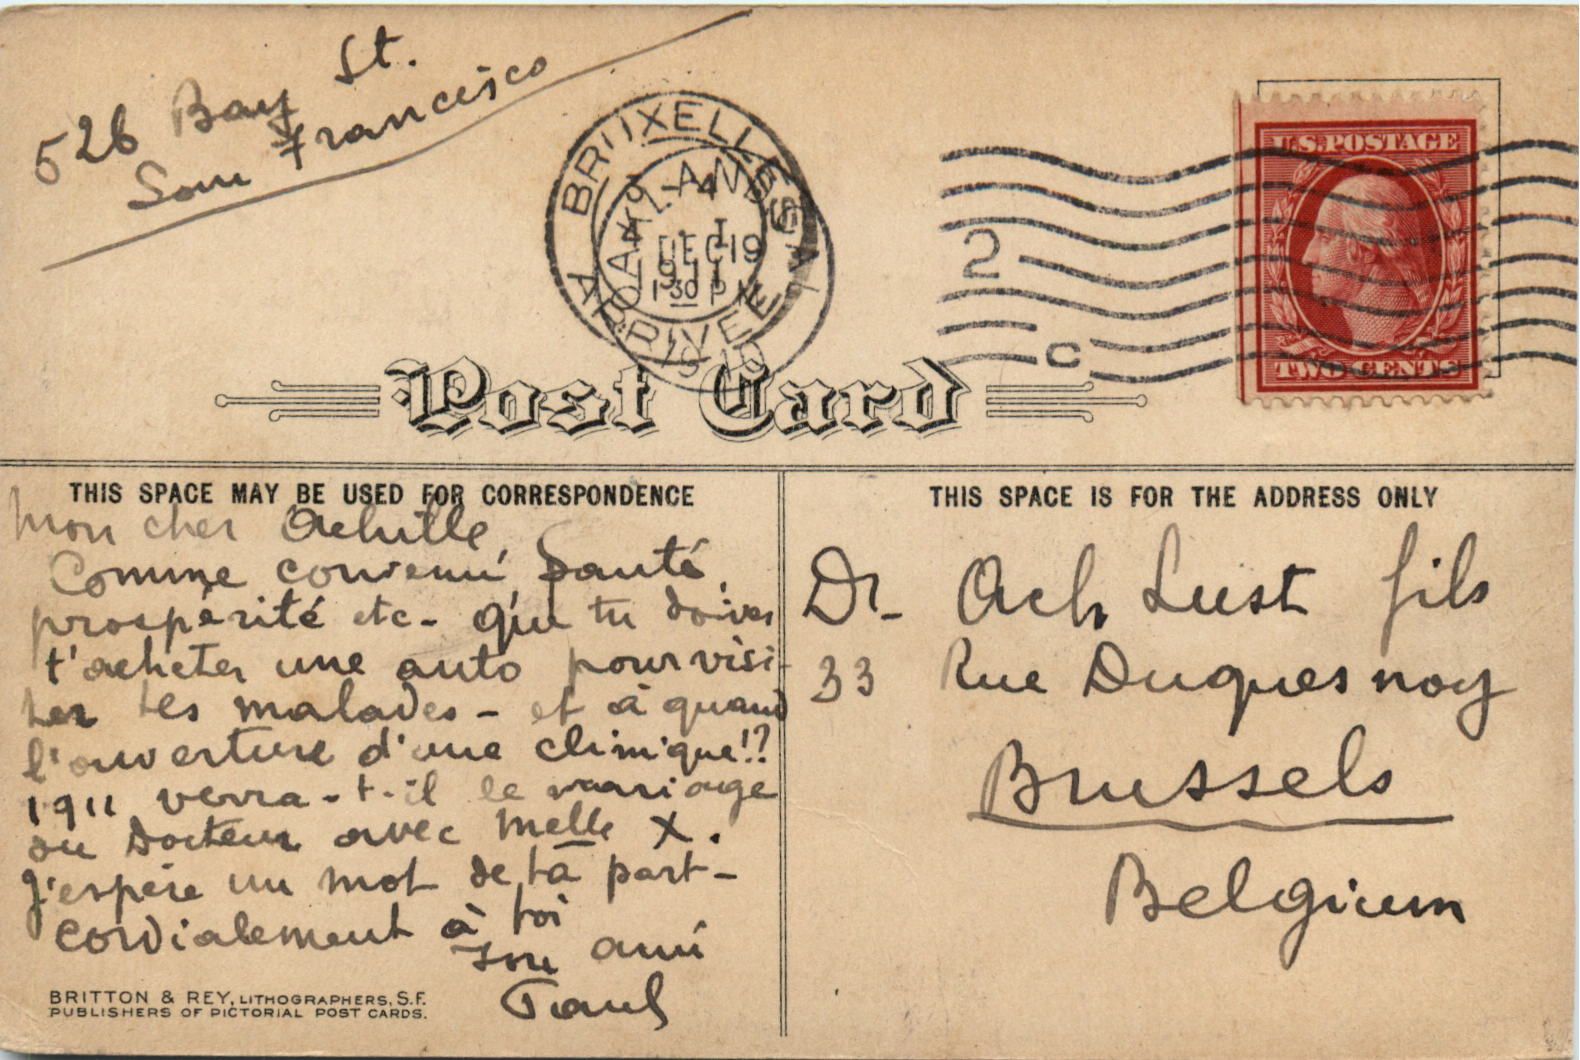 526 Bay St.
San Francisco
BRUXELLES
OAKLAND CAL
4
DEC 19
1911
1 30 P M
ARRIVEE
1910
2
c
U.S. POSTAGE
TWO CENTS
Post Card
THIS SPACE MAY BE USED FOR CORRESPONDENCE
Mon cher Achille
Comme convenu, Santé,
prospérité etc- que tu doives
t'acheter une auto pour visi-
ter tes malades - et à quand
l'ouverture d'une clinique!?
1911 verra-t-il le mariage
du Docteur avec Melle X.
J'espère un mot de ta part-
cordialement à toi
Ton ami
Paul
BRITTON & REY, LITHOGRAPHERS, S.F.
PUBLISHERS OF PICTORIAL POST CARDS.
THIS SPACE IS FOR THE ADDRESS ONLY
Dr- Ach Lust fils
33 Rue Duquesnoy
Brussels
Belgium